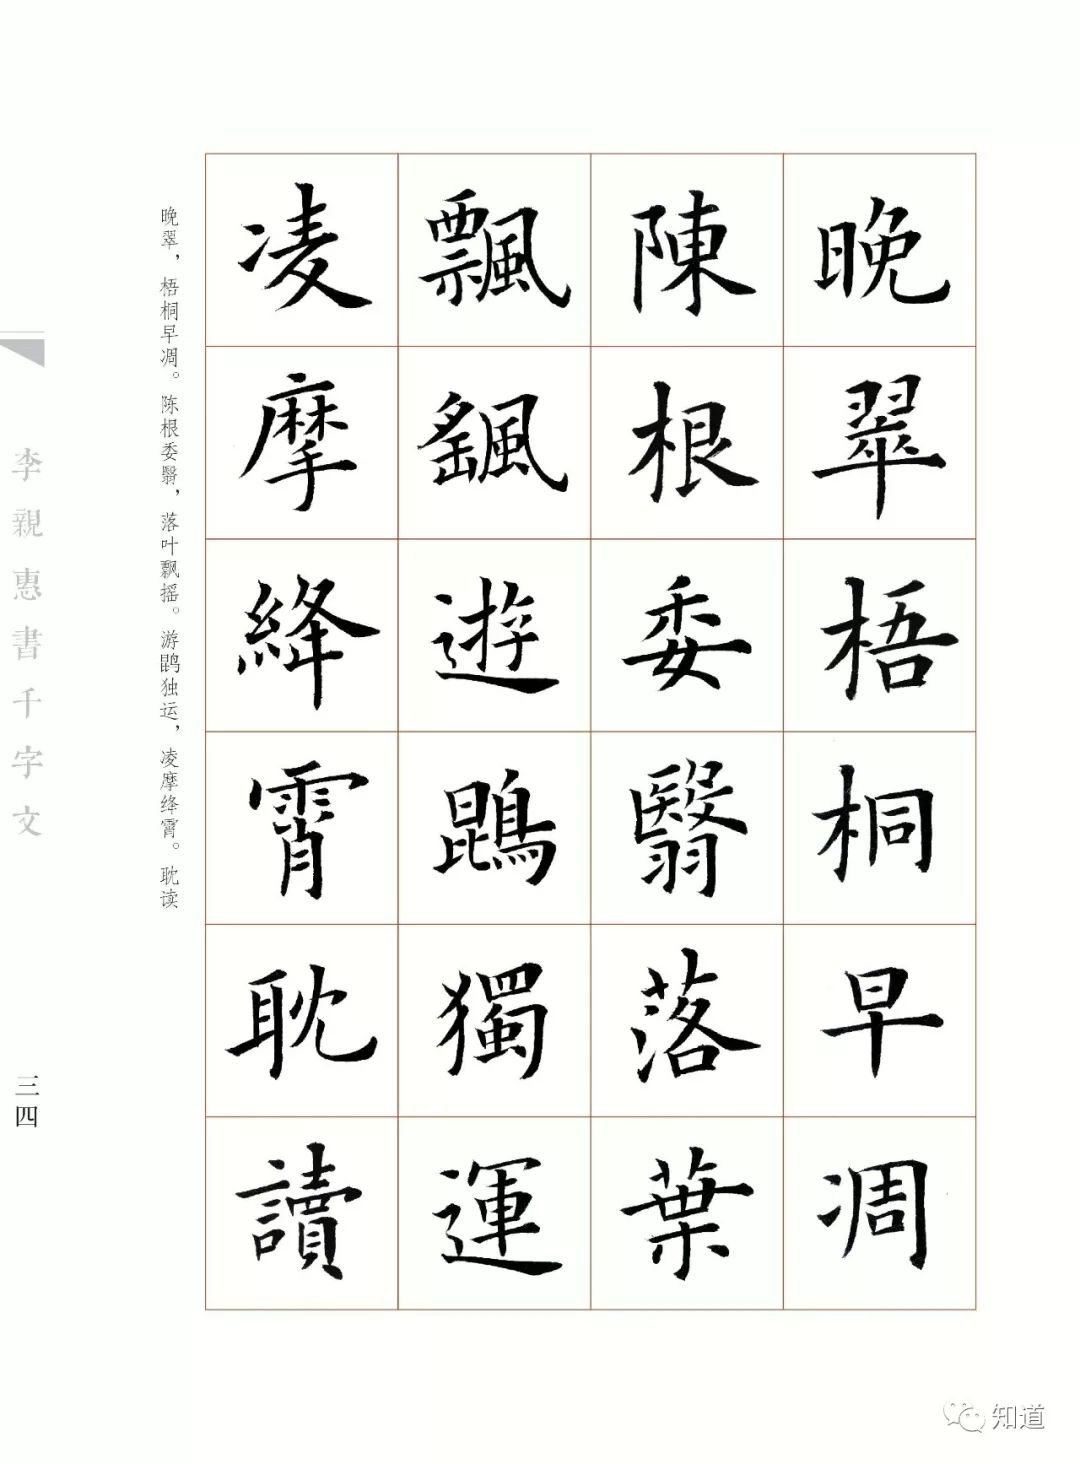 晚翠梧桐早凋
陳根委翳落葉
飄颻遊鵾獨運
凌摩絳霄耽讀
晚翠，梧桐早凋。陈根委翳，落叶飘摇。游鹍独运，凌摩绛霄。耽读
李親惠書千字文
三四
知道